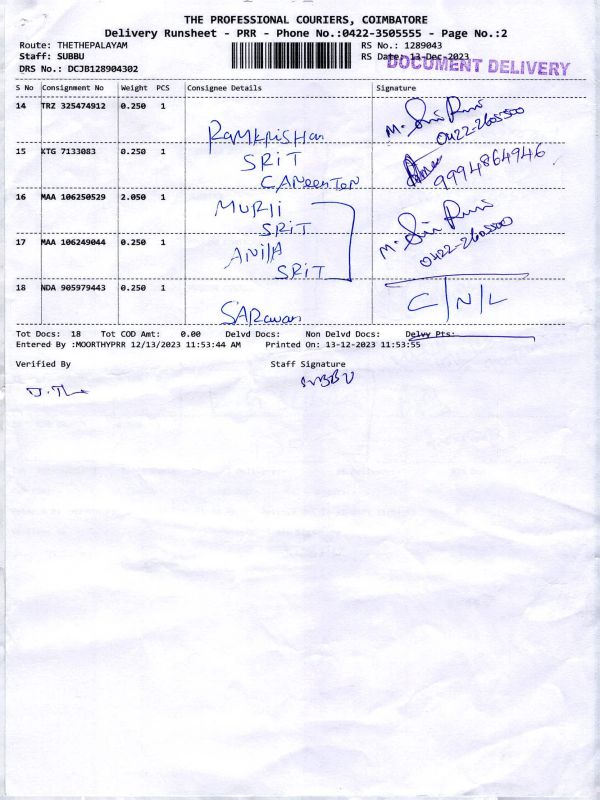 THE PROFESSIONAL COURIERS, COIMBATORE
Delivery Runsheet - PRR - Phone No.:0422-3505555 - Page No.:2
Route: THETHEPALAYAM RS No.: 1289043
Staff: SUBBU RS Date: 13-Dec-2023
DRS No.: DCJB128904302 DOCUMENT DELIVERY
S No Consignment No Weight PCS Consignee Details Signature
14 TRZ 325474912 0.250 1
RamKrishan 0422-2605500
15 KTG 7133083 0.250 1 SRIT
CANeenTen 9994864946
16 MAA 106250529 2.050 1 MURli
SRIT
17 MAA 106249044 0.250 1 ANilA 0422-2605000
SRIT
18 NDA 905979443 0.250 1 C/N/L
SARavan
Tot Docs: 18 Tot COD Amt: 0.00 Delvd Docs: Non Delvd Docs: Delvy Pts:
Entered By :MOORTHYPRR 12/13/2023 11:53:44 AM Printed On: 13-12-2023 11:53:55
Verified By Staff Signature
SUBBU